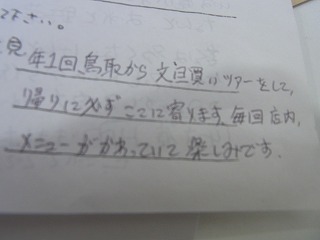 下さい。
見 年1回、鳥取から 文旦買いツアーをして、
帰りに必ずここに寄ります。毎回店内、
メニューがかわっていて楽しみです。